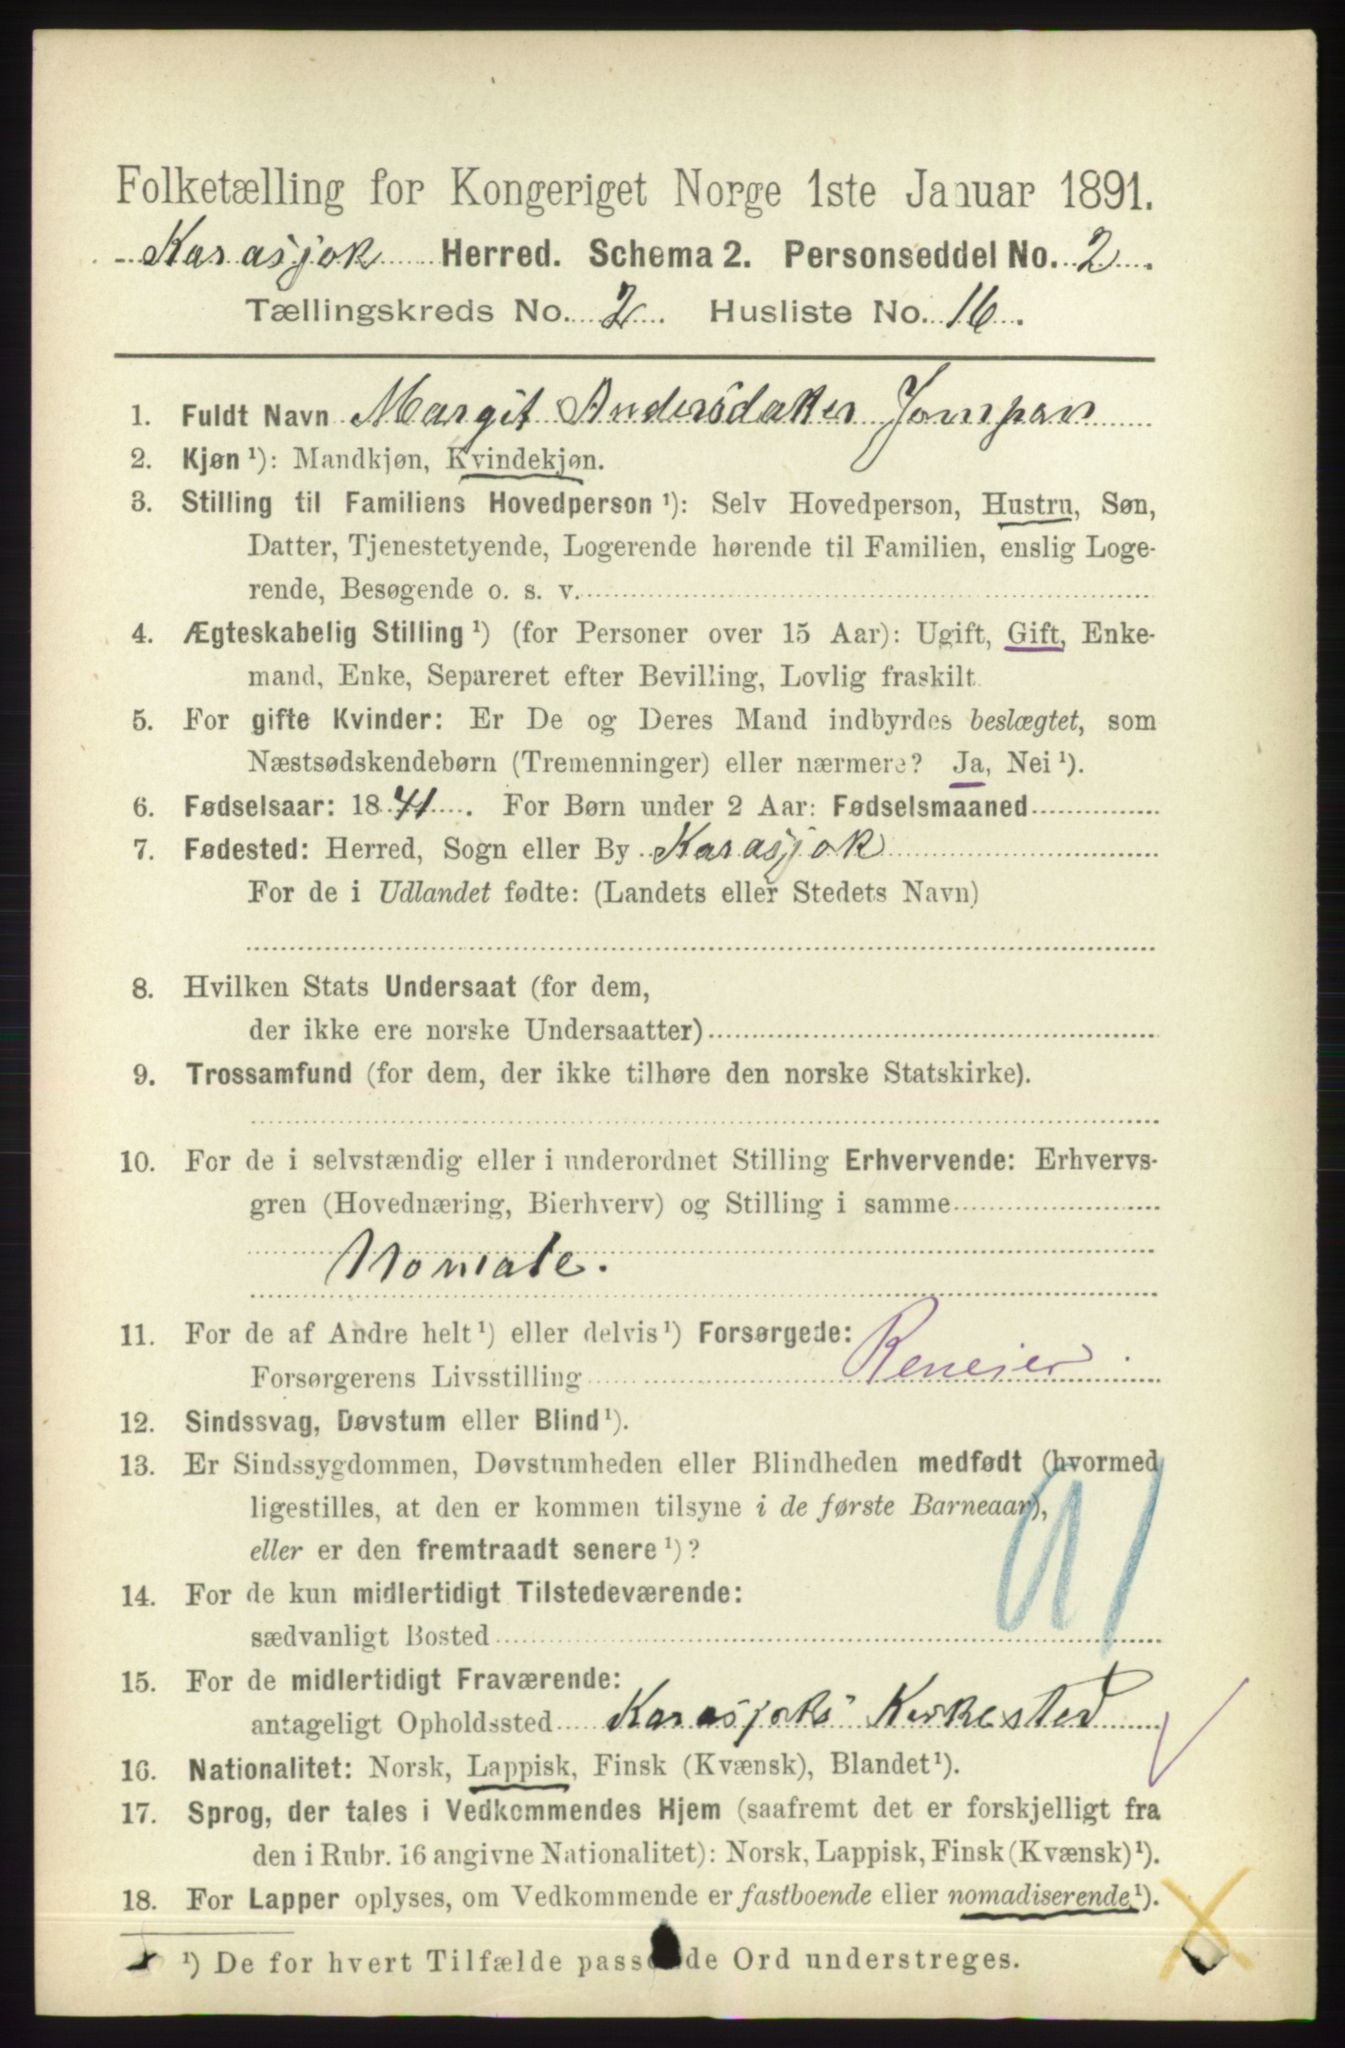 Folketælling for Kongeriget Norge 1ste Januar 1891.
Karasjok Herred. Schema 2. Personseddel No. 2.
Tællingskreds No. 2. Husliste No. 16.
1. Fuldt Navn Margit Andersdatter Jompan
2. Kjøn ¹): Mandkjøn, Kvindekjøn.
3. Stilling til Familiens Hovedperson ¹): Selv Hovedperson, Hustru, Søn,
Datter, Tjenestetyende, Logerende hørende til Familien, enslig Loge-
rende, Besøgende o. s. v.
4. Ægteskabelig Stilling ¹) (for Personer over 15 Aar): Ugift, Gift, Enke-
mand, Enke, Separeret efter Bevilling, Lovlig fraskilt
5. For gifte Kvinder: Er De og Deres Mand indbyrdes beslægtet, som
Næstsødskendebørn (Tremenninger) eller nærmere? Ja, Nei ¹).
6. Fødselsaar: 1841. For Børn under 2 Aar: Fødselsmaaned
7. Fødested: Herred, Sogn eller By Karasjok
For de i Udlandet fødte: (Landets eller Stedets Navn)
8. Hvilken Stats Undersaat (for dem,
der ikke ere norske Undersaatter)
9. Trossamfund (for dem, der ikke tilhøre den norske Statskirke).
10. For de i selvstændig eller i underordnet Stilling Erhvervende: Erhvervs-
gren (Hovednæring, Bierhverv) og Stilling i samme
Nomade.
11. For de af Andre helt ¹) eller delvis ¹) Forsørgede:
Forsørgerens Livsstilling Reneier
12. Sindssvag, Døvstum eller Blind ¹).
13. Er Sindssygdommen, Døvstumheden eller Blindheden medfødt (hvormed
ligestilles, at den er kommen tilsyne i de første Barneaar),
eller er den fremtraadt senere ¹)?
14. For de kun midlertidigt Tilstedeværende:
sædvanligt Bosted
15. For de midlertidigt Fraværende:
antageligt Opholdssted Karasjoks Kirkested
16. Nationalitet: Norsk, Lappisk, Finsk (Kvænsk), Blandet ¹).
17. Sprog, der tales i Vedkommendes Hjem (saafremt det er forskjelligt fra
den i Rubr. 16 angivne Nationalitet): Norsk, Lappisk, Finsk (Kvænsk) ¹).
18. For Lapper oplyses, om Vedkommende er fastboende eller nomadiserende ¹).
¹) De for hvert Tilfælde passende Ord understreges.